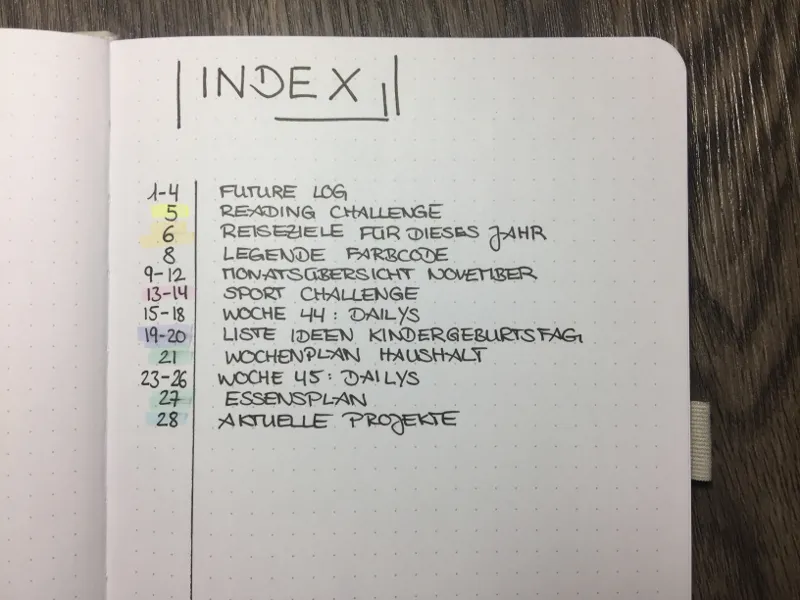 INDEX
1-4 FUTURE LOG
5 READING CHALLENGE
6 REISEZIELE FÜR DIESES JAHR
8 LEGENDE FARBCODE
9-12 MONATSÜBERSICHT NOVEMBER
13-14 SPORT CHALLENGE
15-18 WOCHE 44: DAILYS
19-20 LISTE IDEEN KINDERGEBURTSTAG
21 WOCHENPLAN HAUSHALT
23-26 WOCHE 45: DAILYS
27 ESSENSPLAN
28 AKTUELLE PROJEKTE